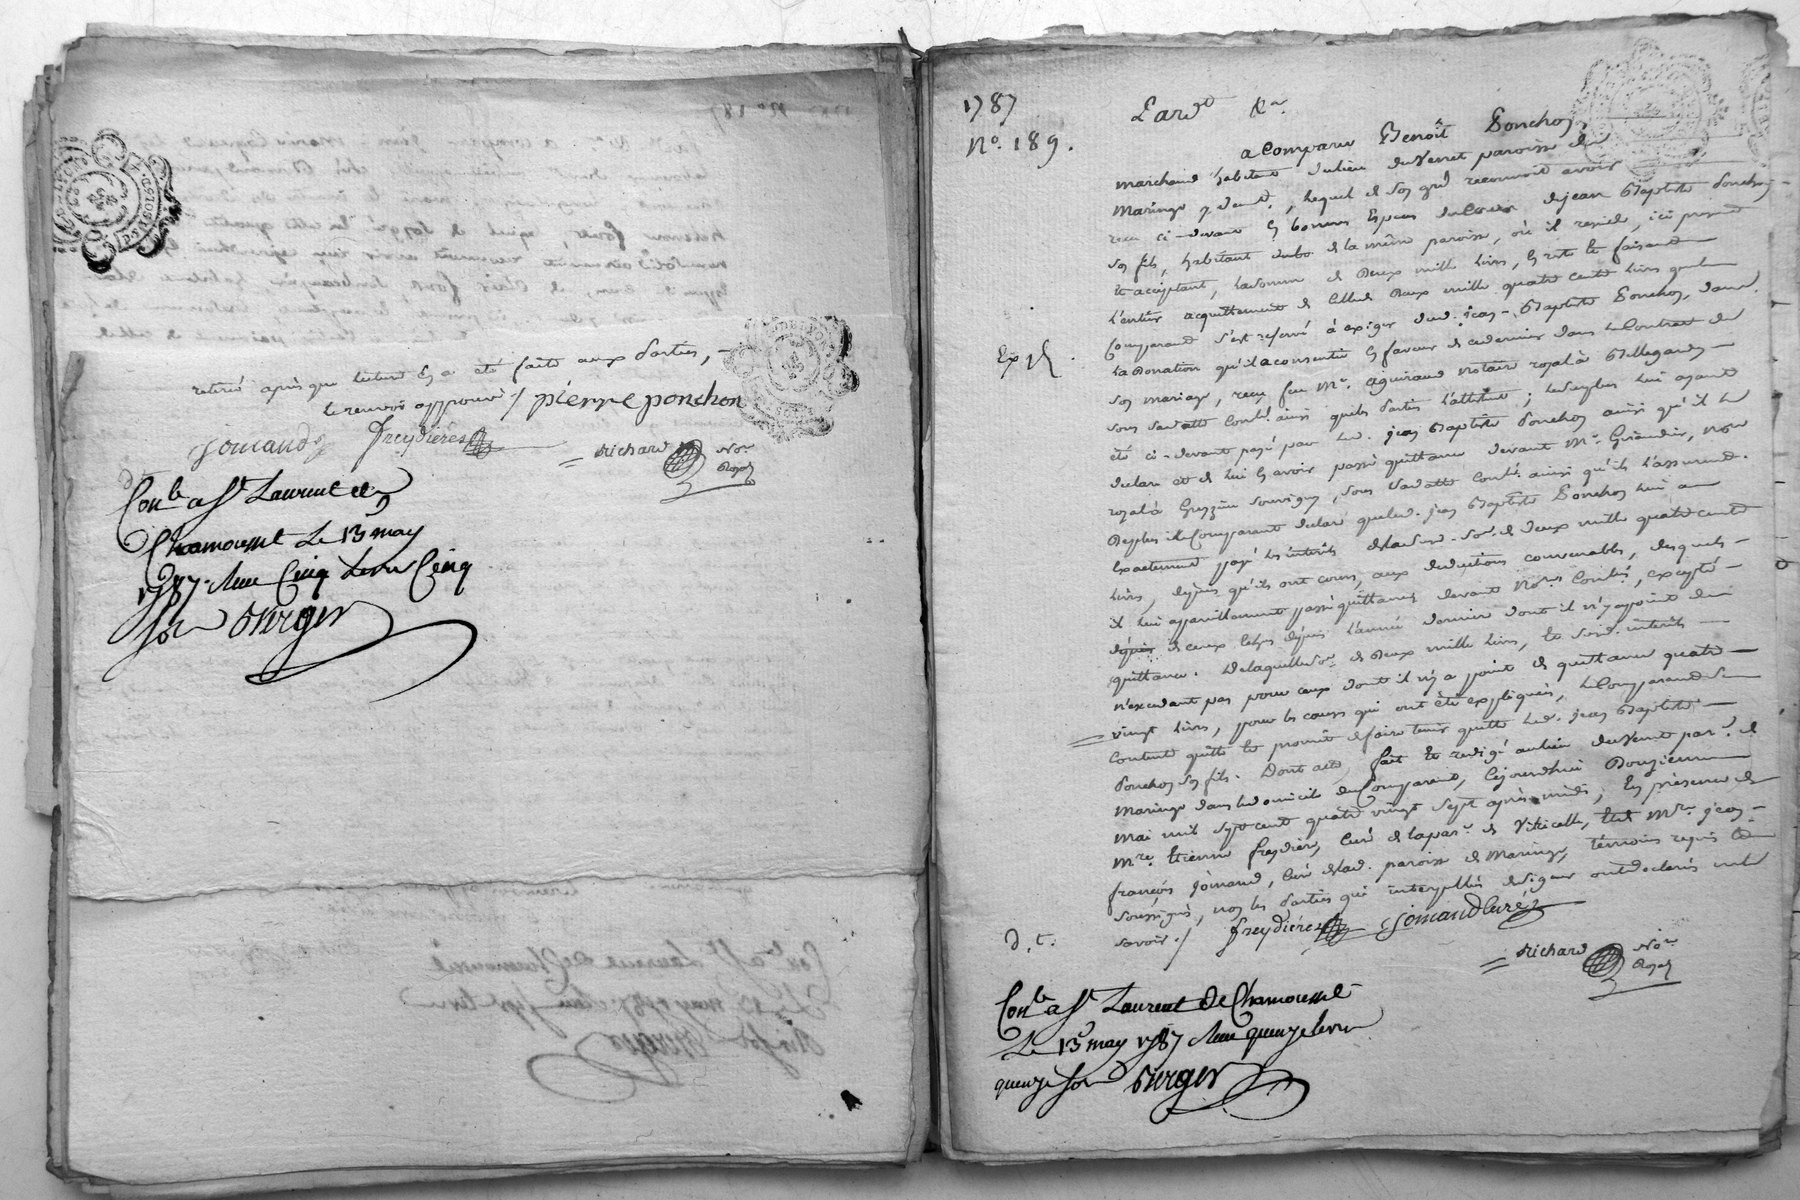 retiré après que lecture en a été faite aux parties,
le renvoi approuvé ./ pierre ponchon
jomand freydiéres
Richard No.re Royal
Con.lé a St Laurent de
Chamousset Le 13 may
1787. Reçu Cinq Livres Cinq
sols Berger
1787
No. 189.
Pard.t &a
a Comparu Benoît Ponchon,
marchand habitant du lieu du Verret paroisse de
Maringe y dem.t, lequel de son gré reconnoit avoir
reçu ci-devant en bonnes Espèces du Cours de jean Baptiste Ponchon
son fils, habitant de la même paroisse, où il reside, ici présent
et acceptant, la somme de Deux mille livres, en reste et faisant
l'entier acquittement de celle de Deux mille quatre cents livres que le
Comparant s'est reservé à exiger dud. jean-Baptiste Ponchon, dans
Exp.
la Donation qu'il a consentie en faveur de ce dernier dans le Contrat de
son mariage, reçu feu Me. aguiraud notaire royal à Bellegarde
sous sa datte Contlé. ainsi que les parties l'attestent;
été ci-devant payé par led. jean Baptiste Ponchon ainsi qu'il le
déclare et de lui en avoir passé quittance devant Me. Giraudier, nore
royal à Grezieu Souvigny, sous sa datte Contlé. ainsi qu'ils l'assurent.
De plus ille Comparant déclare que led. jean Baptiste Ponchon lui a
exactement payé les intérêts de lad. so.e de deux mille quatre cents
livres, depuis qu'ils ont couru, aux deductions convenables, desquels
il lui a pareillement passé quittances devant No.res Contlées, excepté
depuis de ceux échus depuis l'année derniere dont il n'y a point de
quittance. De laquelle so.e de Deux mille livres, et desd. intérêts
n'excedant pas pour ceux dont il n'y a point de quittance quatre
vingt livres, pour les causes qui ont été expliquées, le Comparant se
contente quitte et promet de faire tenir quitte led. jean Baptiste
Ponchon son fils. Dont acte, fait et redigé au lieu du Verret par.se de
Maringe dans le domicile du Comparant, cejourd'hui Douzieme
mai mil sept cent quatre vingt sept après midi, en présence de
Mre. Etienne freydiere, Curé de la par.se de Viricelle, et de Mre. jean
françois jomand, Curé de lad. paroisse de Maringe, témoins requis et
soussignés, non les parties qui interpellées de signer ont déclarés ne le
savoir ./ freydiéres jomand Curé
D.t.
Richard No.re Royal
Con.lé a St Laurent de Chamousset
Le 13 may 1787 Reçu quenze livres
quenze sols Berger